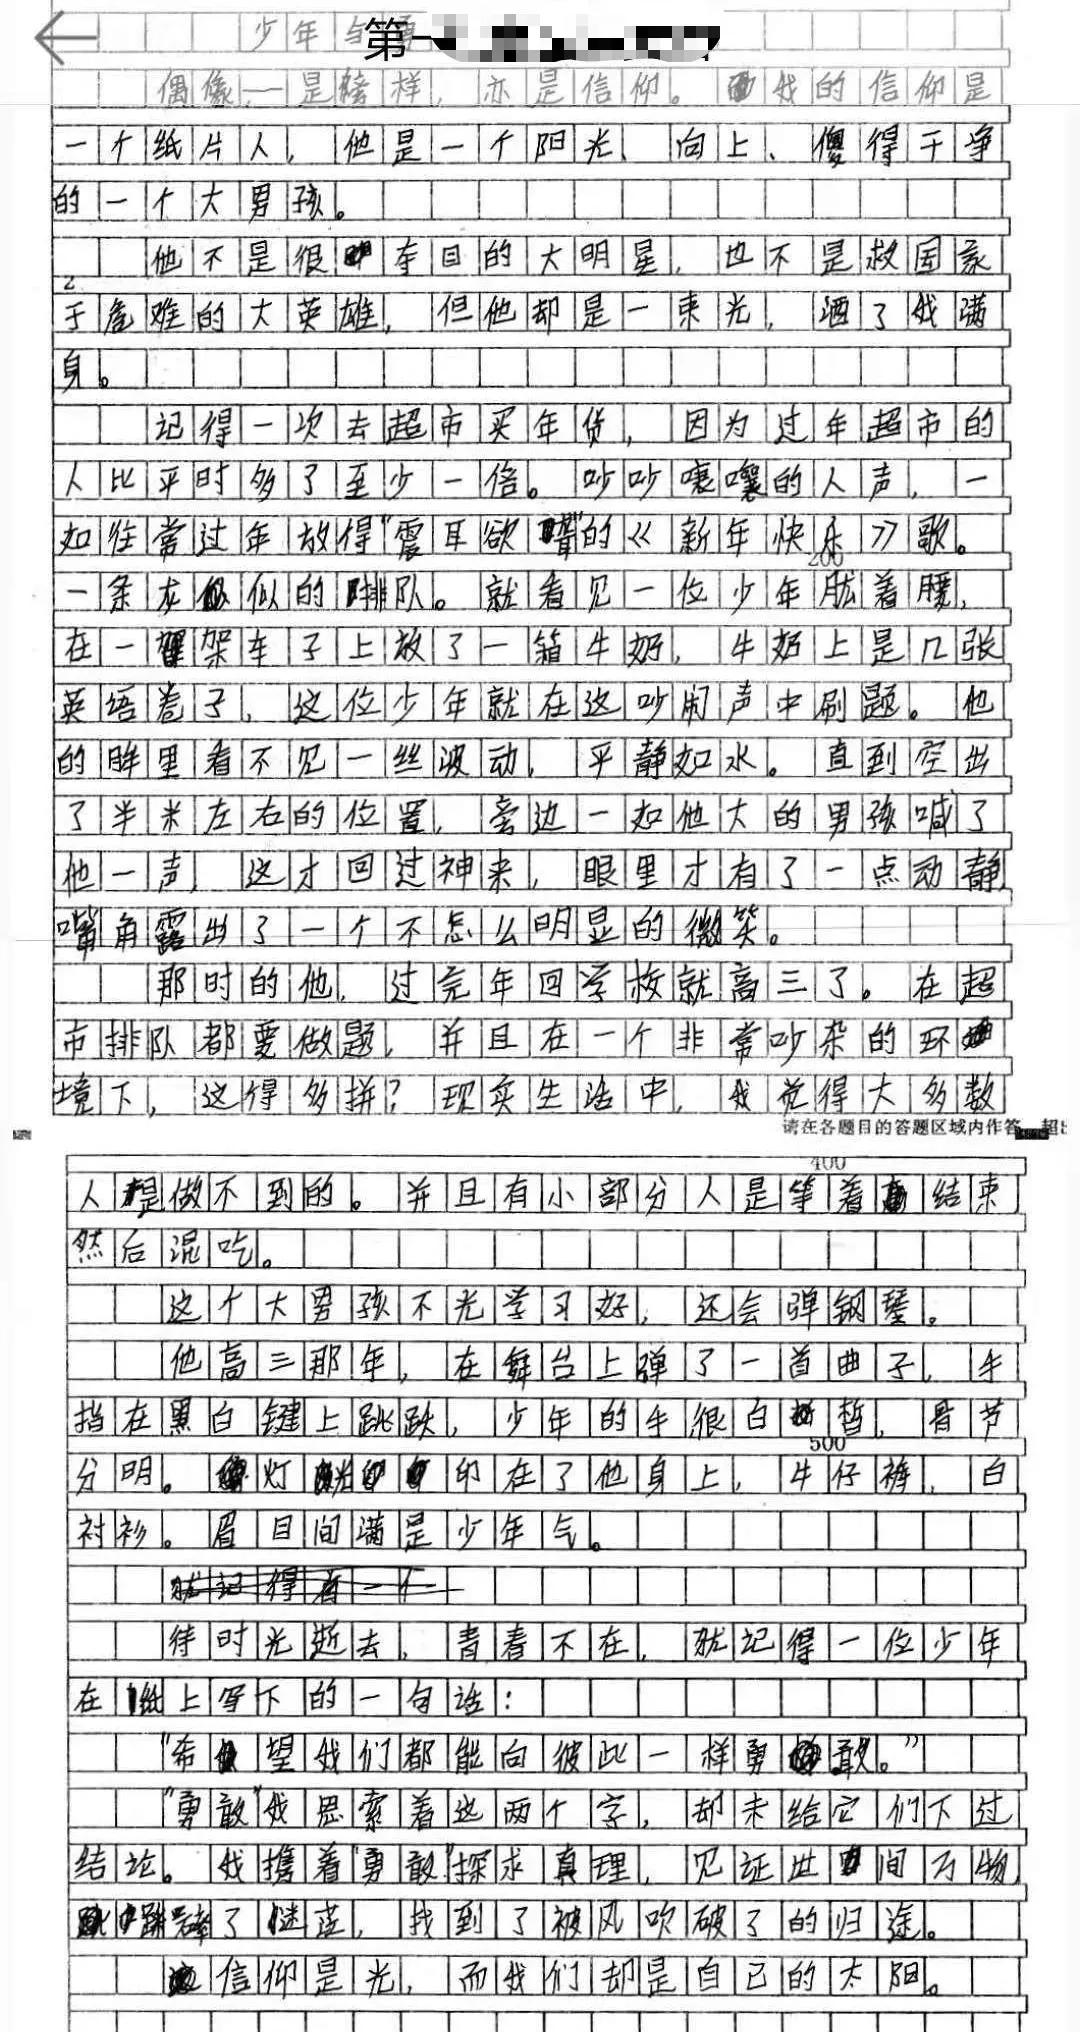 少年与
第一
偶像,一是榜样,亦是信仰。我的信仰是
一个纸片人,他是一个阳光、向上、傻得干净
的一个大男孩。
他不是很夺目的大明星,也不是救国家
于危难的大英雄,但他却是一束光,洒了我满
身。
记得一次去超市买年货,因为过年超市的
人比平时多了至少一倍。吵吵嚷嚷的人声,一
如往常过年放得"震耳欲聋"的《新年快乐》歌。
200
一条龙似的排队。就看见一位少年肱着腰,
在一架车子上放了一箱牛奶,牛奶上是几张
英语卷子,这位少年就在这吵闹声中刷题。他
的眸里看不见一丝波动,平静如水。直到空出
了半米左右的位置,旁边一如他大的男孩喊了
他一声,这才回过神来,眼里才有了一点动静,
嘴角露出了一个不怎么明显的微笑。
那时的他,过完年回学校就高三了。在超
市排队都要做题,并且在一个非常吵杂的环
境下,这得多拼?现实生活中,我觉得大多数
请在各题目的答题区域内作答,超出
400
人是做不到的。并且有小部分人是等着结束
然后混吃。
这个大男孩不光学习好,还会弹钢琴。
他高三那年,在舞台上弹了一首曲子,手
指在黑白键上跳跃,少年的手很白皙,骨节
500
分明。灯光印在了他身上,牛仔裤,白
衬衫。眉目间满是少年气。
就记得有一个
待时光逝去,青春不在,就记得一位少年
在纸上写下的一句话:
"希望我们都能向彼此一样勇敢。"
"勇敢"我思索着这两个字,却未给它们下过
结论。我携着"勇敢"探求真理,见证世间万物,
了迷茫,找到了被风吹破了的归途。
信仰是光,而我们却是自己的太阳。